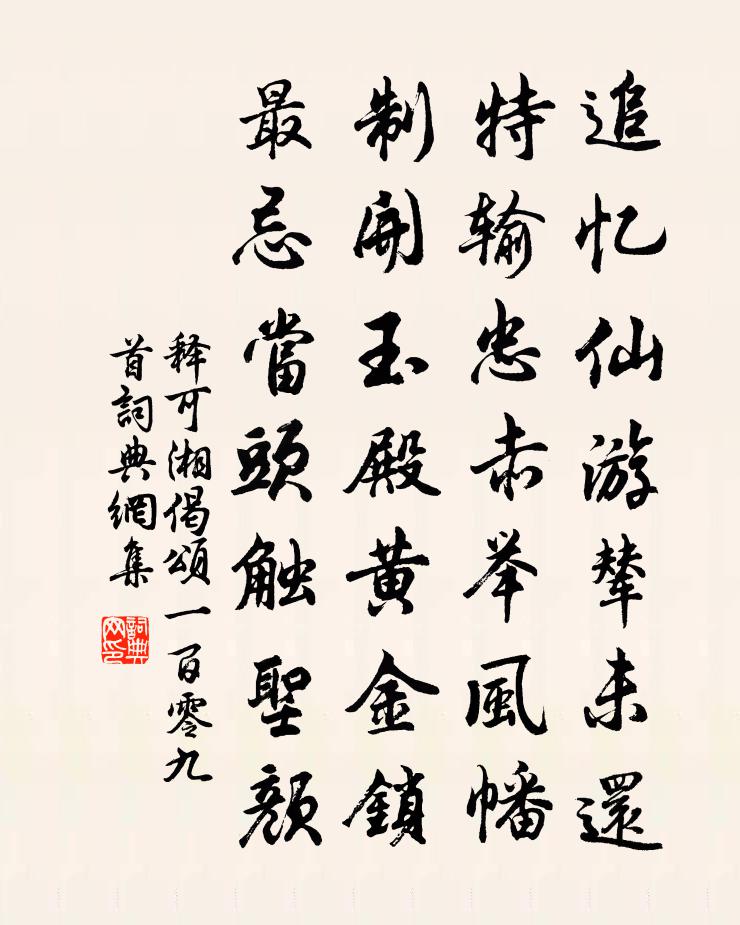 追忆仙游辇未還
特输忠赤举風幡
制開玉殿黄金鎖
最忌當頭触聖顔
释可湘偈頌一百零九
首詞典網集
詞典
网印